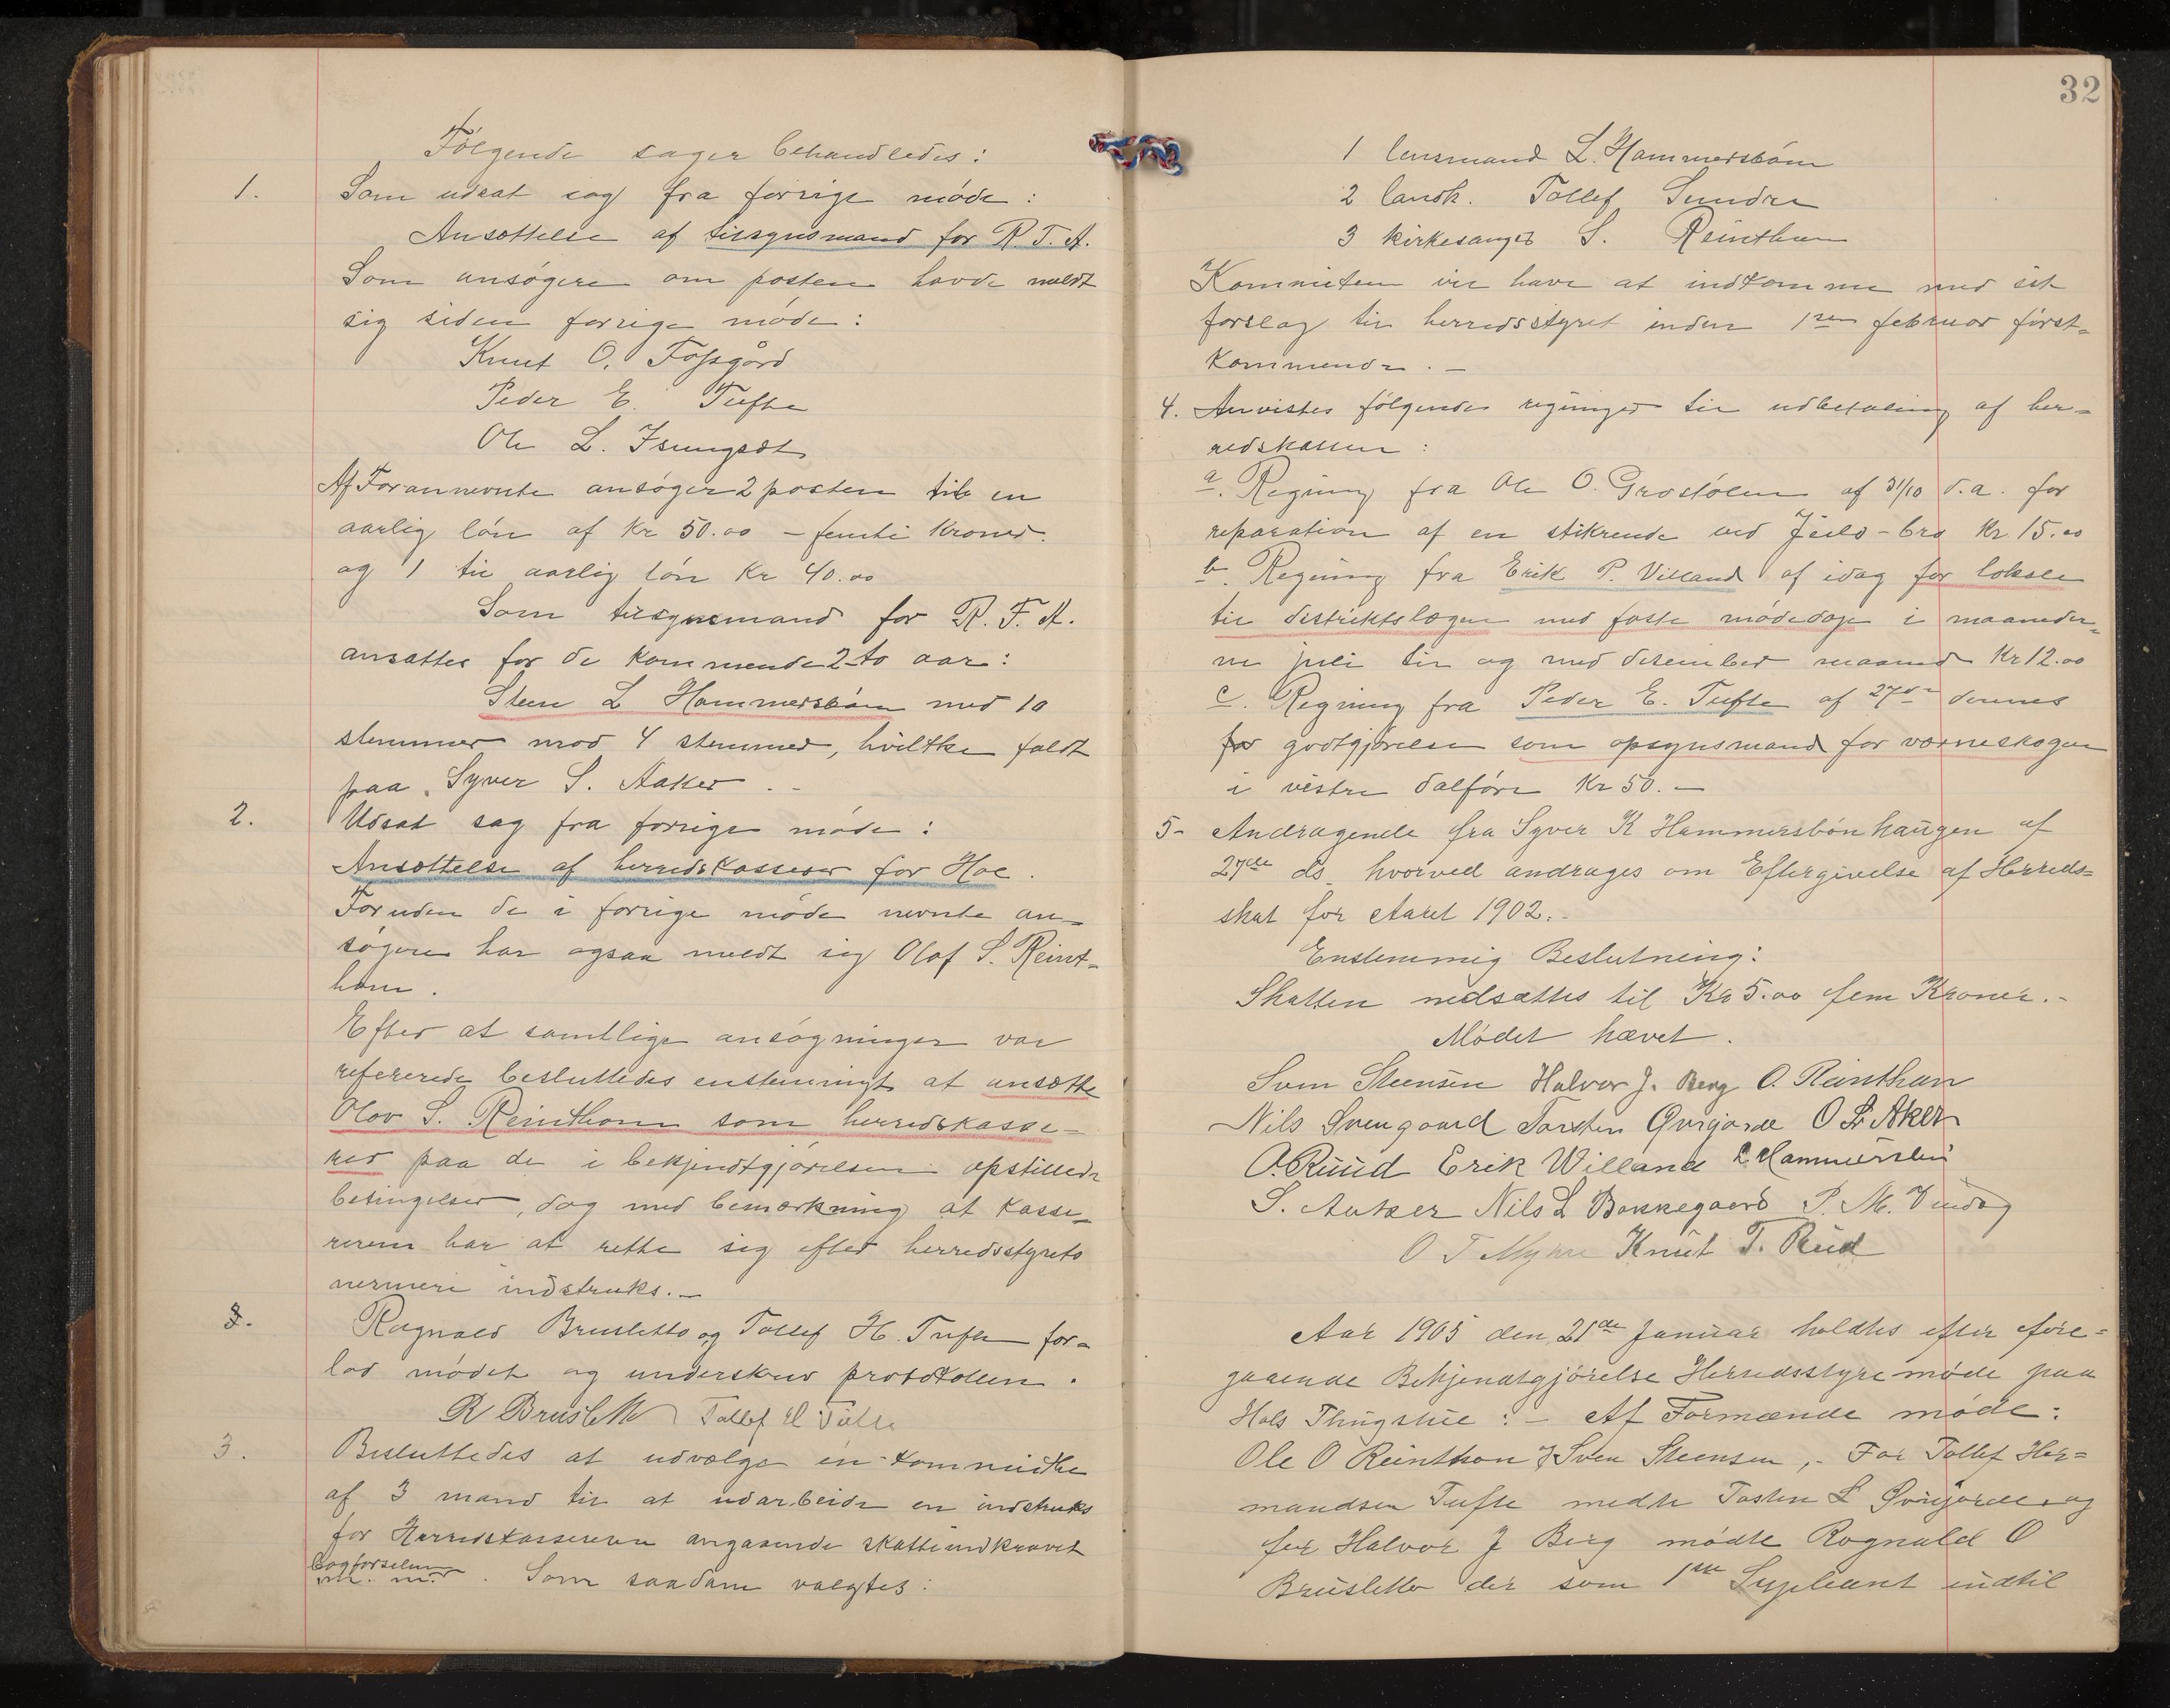 Følgende sager behandledes:
1. Som udsat sag fra forrige møde:
Ansættelse af tilsynsmand for R. F. A.
Som ansøgere om posten havde meldt
sig siden forrige møde:
Knut O. Fossgård
Peder E. Tufte
Ole L.
Af Forannevnte ansøger 2 posten til en
aarlig løn af Kr 50.00 – femti Kroner.
og 1 til aarlig løn Kr 40.00
Som tilsynsmand for R. F. A.
ansattes for de kommende 2-to aar:
Steen L Hammersbøen med 10
stemmer mod 4 stemmer, hvilke faldt
paa Syver S. Aaker. –
2. Udsat sag fra forrige møde:
Ansættelse af herredskasserer for Hol.
Foruden de i forrige møde nevnte an-
søgere har ogsaa meldt sig Olaf S. Reint-
hon.
Efter at samtlige ansøgninger var
refererede besluttedes enstemmigt at ansætte
Olav S. Reinthon som herredskasse-
rer paa de i bekjendtgjørelsen opstillede
betingelser, dog med bemærkning at kasse-
reren har at rette sig efter herredsstyrets
nermere indstruks. –
Ragnald Brusletto og Tollef H. Tufte for-
lod mødet og underskrev protokollen.
R Brusletto Tollef H Tufte
3. Besluttedes at udvælge en kommitte
af 3 mand til at udarbeide en indstruks
for Herredskassereren angaaende skatteindkrævet
bogførselen
m. m. . Som saadan valgtes:
32
1 lensmand L. Hammersbøen
2 landh. Tollef Sundre
3 kirkesanger S. Reinthon
Kommiteen vil have at indkomme med sit
forslag til herredsstyret inden 1ste februar først-
kommende. –
4. Anvistes følgende regninger til udbetaling af her-
redskassen:
a. Regning fra Ole O. Grostølen af 31/10 d.a. for
reparation af en stikrende ved Jeilo-bro Kr. 15.00
b. Regning fra Erik P. Villand af idag for lokale
til distriktslægen med faste mødedage i maaneder-
ne juli til og med desember maaned Kr 12.00
c. Regning fra Peder E. Tufte af 27de dennes
for godtgjørelse som opsynsmand for værneskogen
i vestre dalføre Kr 50. –
5- Andragende fra Syver K Hammersbønhaugen af
27de ds. hvorved andrages om Eftergivelse af Herreds-
skat for Aaret 1902. -
Enstemmig Beslutning:
Skatten nedsættes til Kr 5.00 fem Kroner. -
Mødet hævet.
Sven Steensen Halvor J. Berg O. Reinthon
Nils Svengaard Torsten Øvrejorde O S Aker
O. Ruud Erik Willand L Hammersbøn
S. Aaker Nils L Bakkegaard P. M.
O T Myhre Knut T. Rud
Aar 1905 den 21de Januar holdtes efter fore-
gaaende Bekjendtgjørelse Herredsstyremøde paa
Hols Thingstue: – Af Formænde møde:
Ole O Reinthon & Sven Steensen, - For Tollef Her-
mandsen Tufte mødte Tosten L Øvrejorde og
for Halvor J Berg mødte Rognald O
Brusletto der som 1ste Supleant indtil